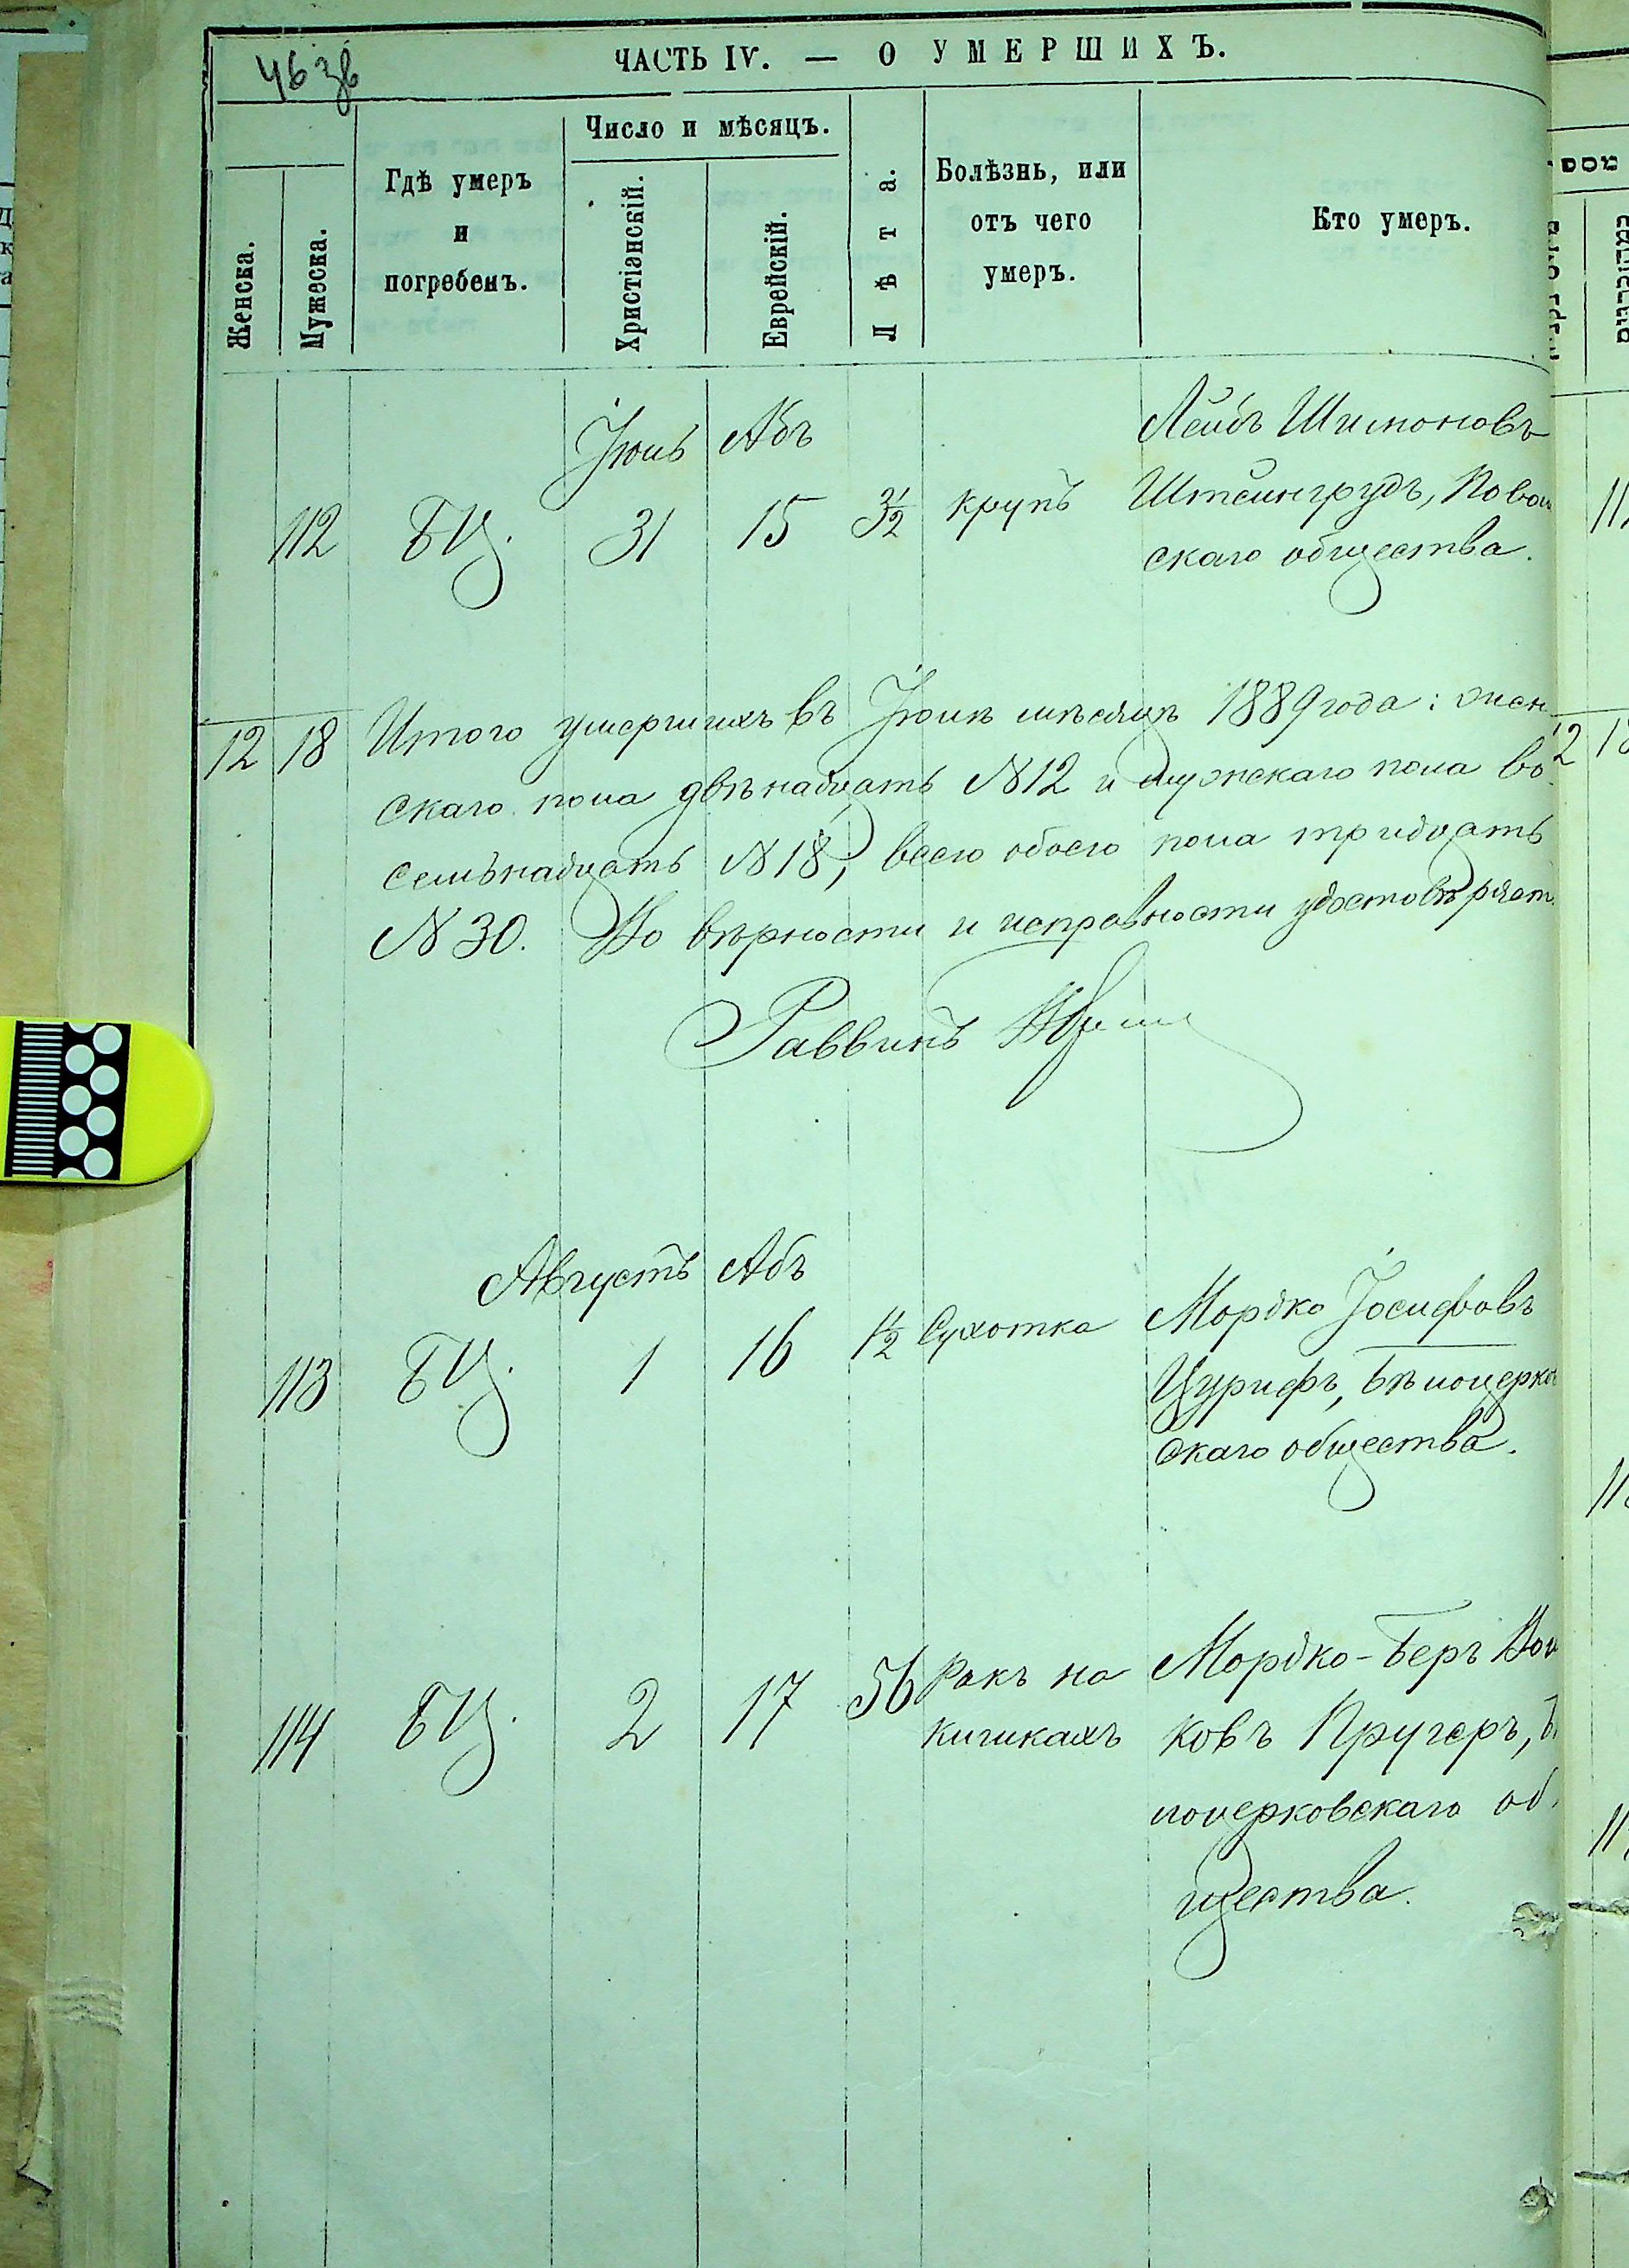 46 зв
ЧАСТЬ IV. — О УМЕРШИХЪ.
Женска.
Мужеска.
Гдѣ умеръ
и
погребенъ.
Число и мѣсяцъ.
Христіанскій.
Еврейскій.
Лѣта.
Болѣзнь, или
отъ чего
умеръ.
Кто умеръ.
Іюль Абъ
112 БЦ. 31 15 3½ крупъ
Лейбъ Шимоновъ
Штейнгрудъ,
скаго общества.
12 18 Итого умершихъ въ Іюлѣ мѣсяцѣ 1889 года: жен
скаго пола двѣнадцать N12 и мужскаго пола во
семьнадцать N18; всего обоего пола тридцать
N30. Во вѣрности и исправности удостовѣряетъ
Раввинъ
Августъ Абъ
113 БЦ. 1 16 1½ Сухотка
Мордко Іосифовъ
Цурифъ, Бѣлоцерков
скаго общества.
114 БЦ. 2 17 56 Ракъ на
кишкахъ
Мордко-Беръ Вол
ковъ Пругеръ, Бѣ
лоцерковскаго об
щества.